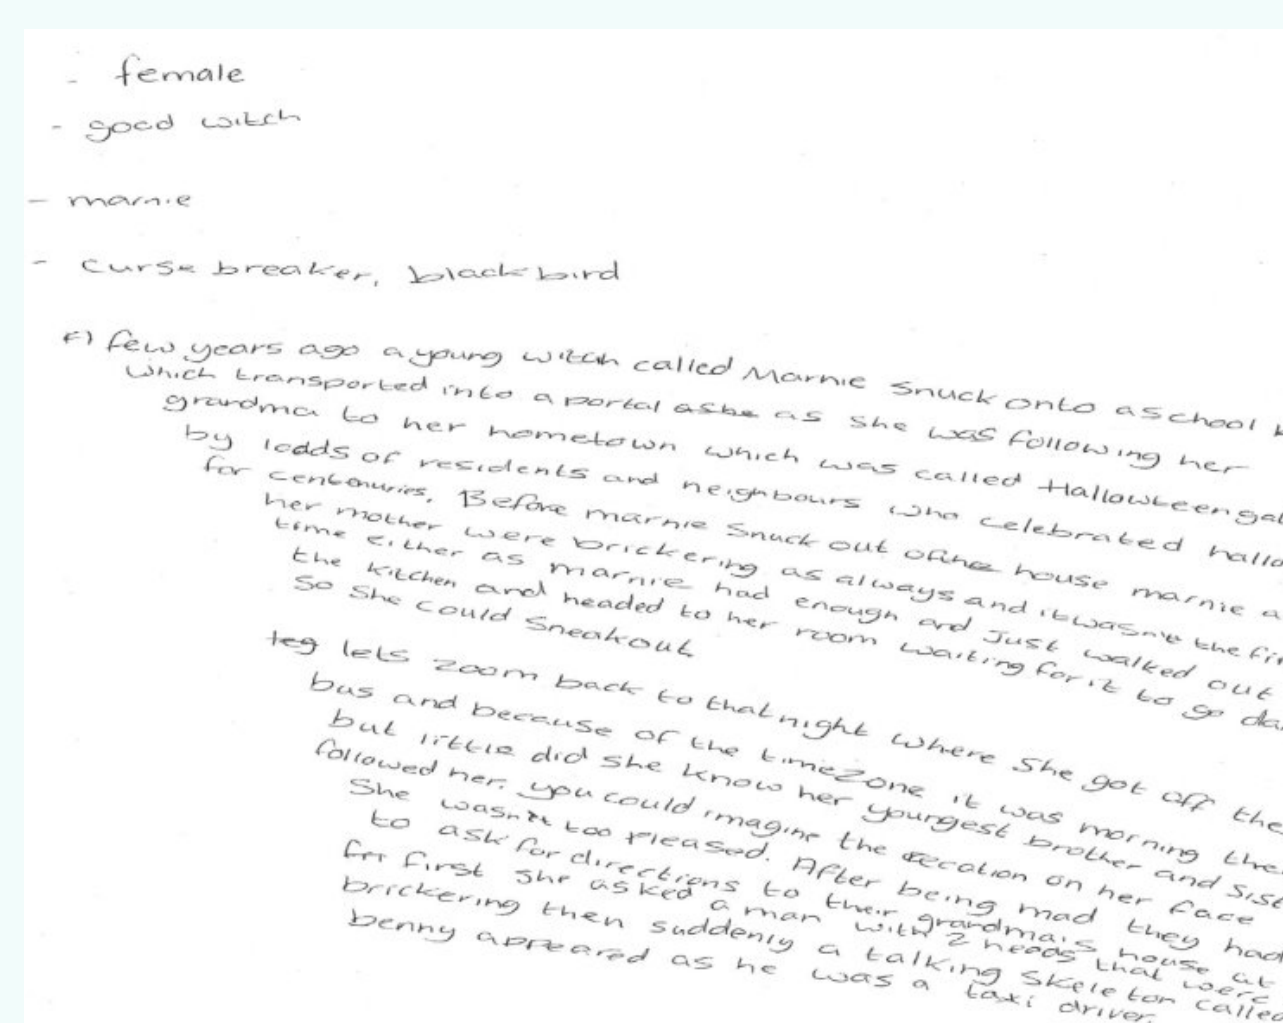 - female
- good witch
- marnie
- curse breaker, blackbird
A few years ago a young witch called Marnie Snuck onto a school
which transported into a portal as she was following her
grandma to her hometown which was called
by loads of residents and neighbours who celebrated
for centenuries. Before marnie Snuck out of the house marnie
her mother were brickering as always and it wasn't the
time either as marnie had enough and Just walked out
the kitchen and headed to her room waiting for it to go
So She could Sneakout
lets zoom back to that night where She got off the
bus and because of the timezone it was morning
but little did she know her youngest brother and
followed her. you could imagine the recation on her face
She wasn't too pleased. After being mad they had
to ask for directions to their grandma's house at
first she asked a man with 2 heads that were
brickering then suddenly a talking skeleton called
benny appeared as he was a taxi driver.